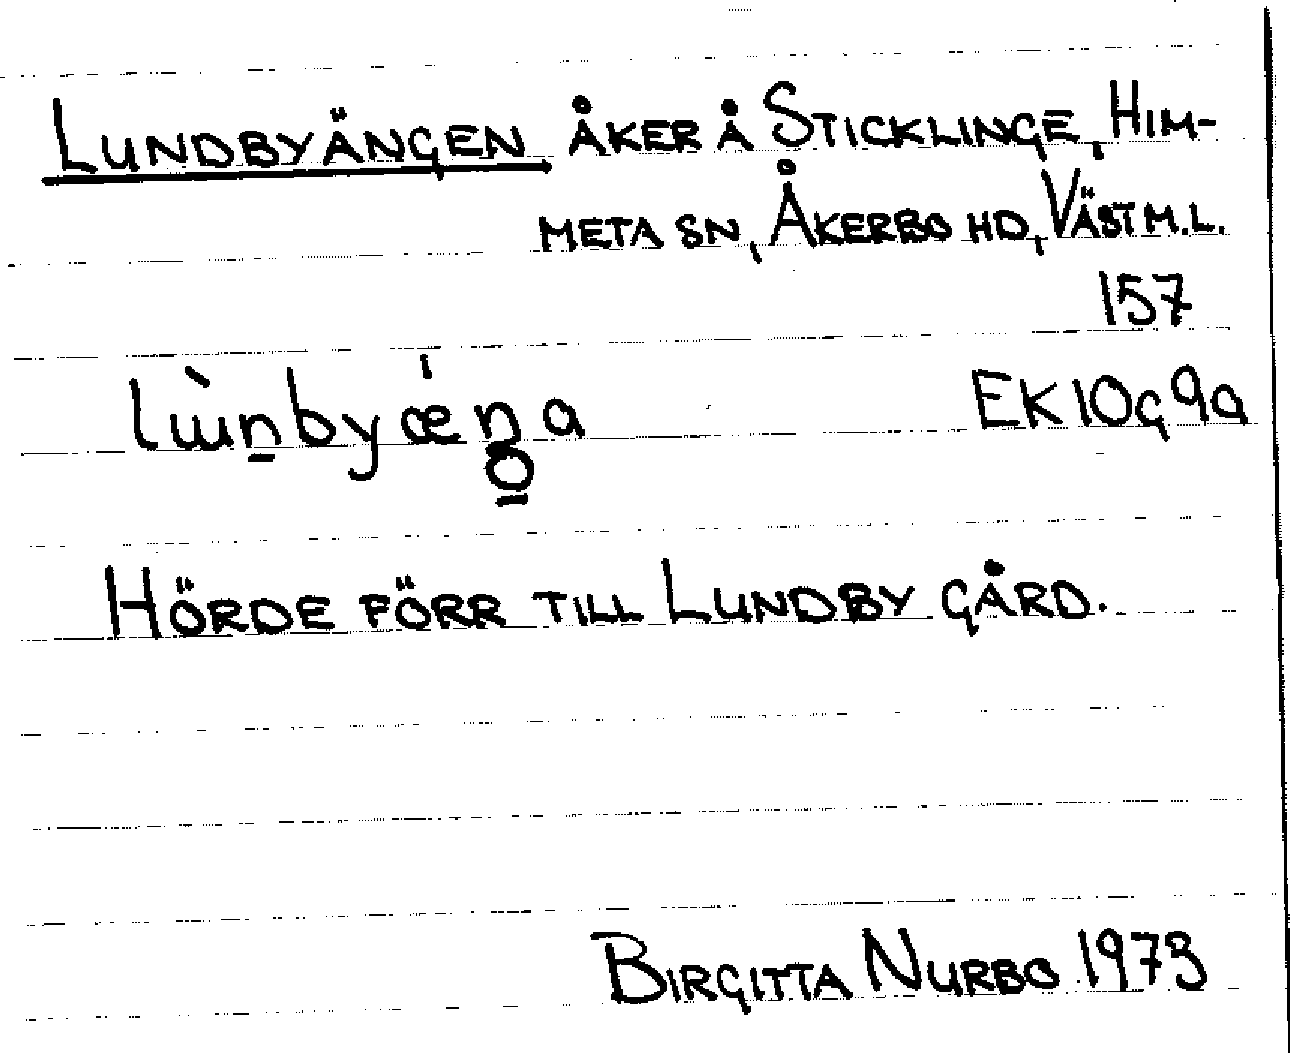 LUNDBYÄNGEN ÅKER Å STICKLINGE, HIM-
META SN, ÅKERBO HD, VÄSTM.L.
157
EK10g9a
HÖRDE FÖRR TILL LUNDBY GÅRD.
BIRGITTA NURBO 1973